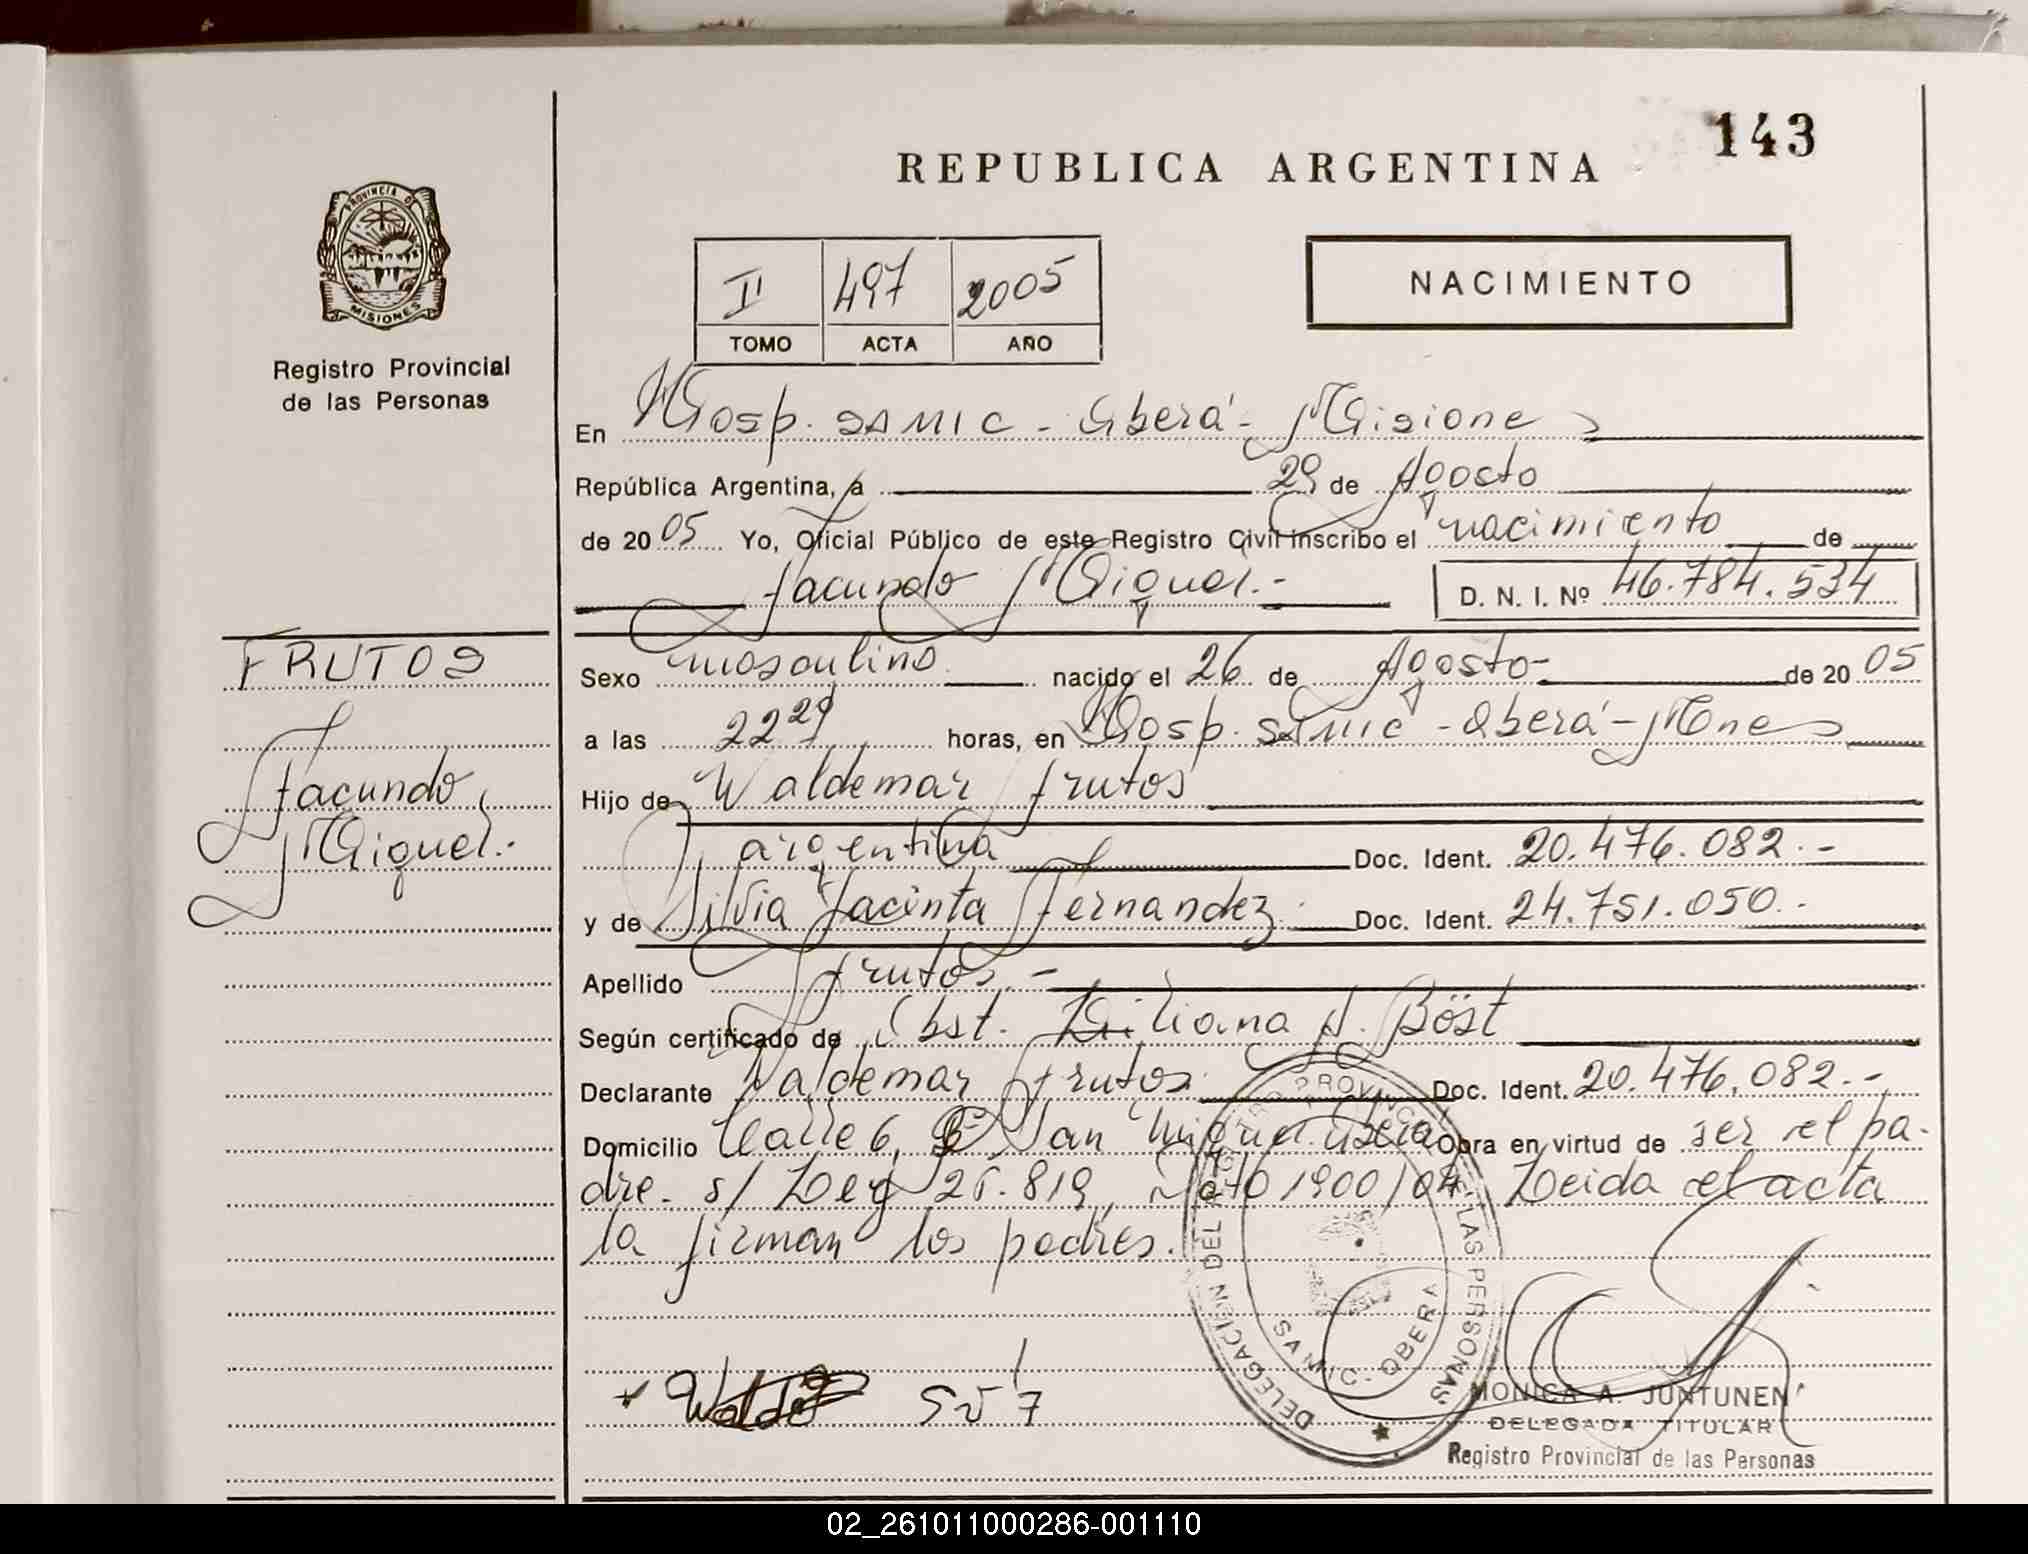 143
REPUBLICA ARGENTINA
PROVINCIA DE
MISIONES
Registro Provincial
de las Personas
II 497 2005
TOMO ACTA AÑO
NACIMIENTO
En Hosp. SAMIC - Oberá - Misiones
República Argentina, a 29 de Agosto
de 2005 Yo, Oficial Público de este Registro Civil inscribo el nacimiento de
Facundo Miguel.-
D. N. I. Nº 46.784.534
FRUTOS
Facundo
Miguel.-
Sexo masculino nacido el 26 de Agosto- de 2005
a las 22 29 horas, en Hosp. SAMIC - Oberá - Mnes
Hijo de Waldemar Frutos
argentina Doc. Ident. 20.476.082.-
y de Silvia Jacinta Fernandez. Doc. Ident. 24.751.050.-
Apellido Frutos.-
Según certificado de Obst. Liliana A. Böst
Declarante Waldemar Frutos. Doc. Ident. 20.476.082.-
Domicilio Calle 6, Bº San Miguel. Oberá Obra en virtud de ser el pa-
dre. s/ Ley 25.819, 1900/04. Leida el acta
la firman los padres.
DELEGACION DEL REGISTRO PROVINCIAL DE LAS PERSONAS
SAMIC - OBERA
MONICA A. JUNTUNEN
DELEGADA TITULAR
Registro Provincial de las Personas
02_261011000286-001110